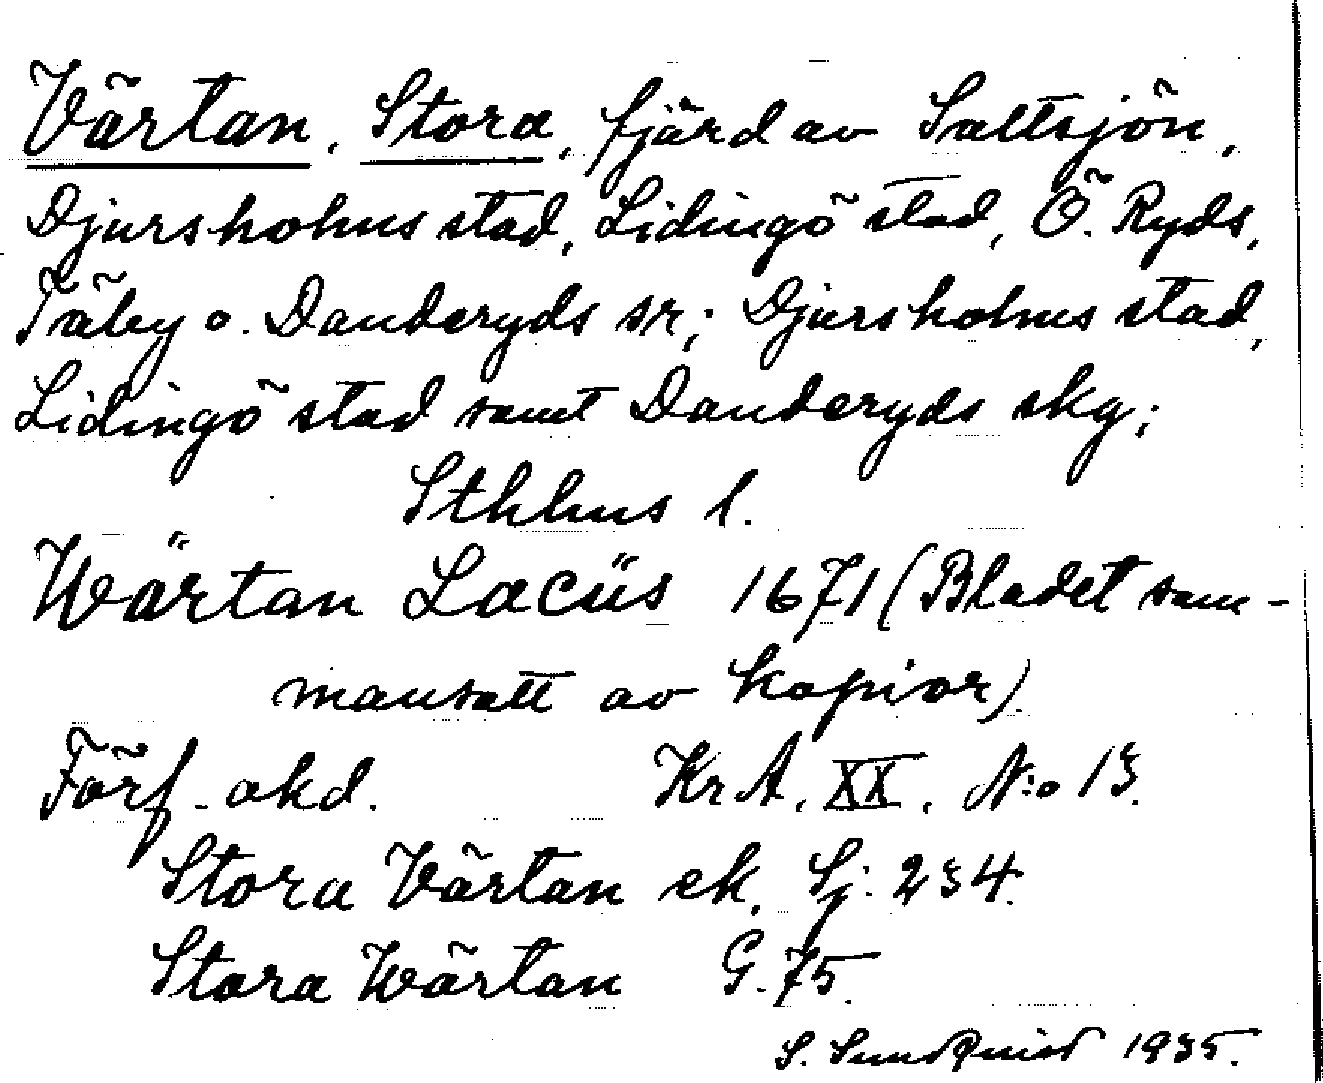 Värtan, Stora, fjärd av Saltsjön,
Djursholms stad, Lidingö stad, Ö. Ryds,
Täby o. Danderyds sr; Djursholms stad,
Lidingö stad samt Danderyds skg;
Sthlms l.
Wärtan Lacüs 1671 (Bladet sam-
mansatt av kopior)
Förf. okd. KrA. XX. N:o 13.
Stora Värtan ek. Sj: 234.
Stora Wärtan G. 75.
S. Sundqvist 1935.